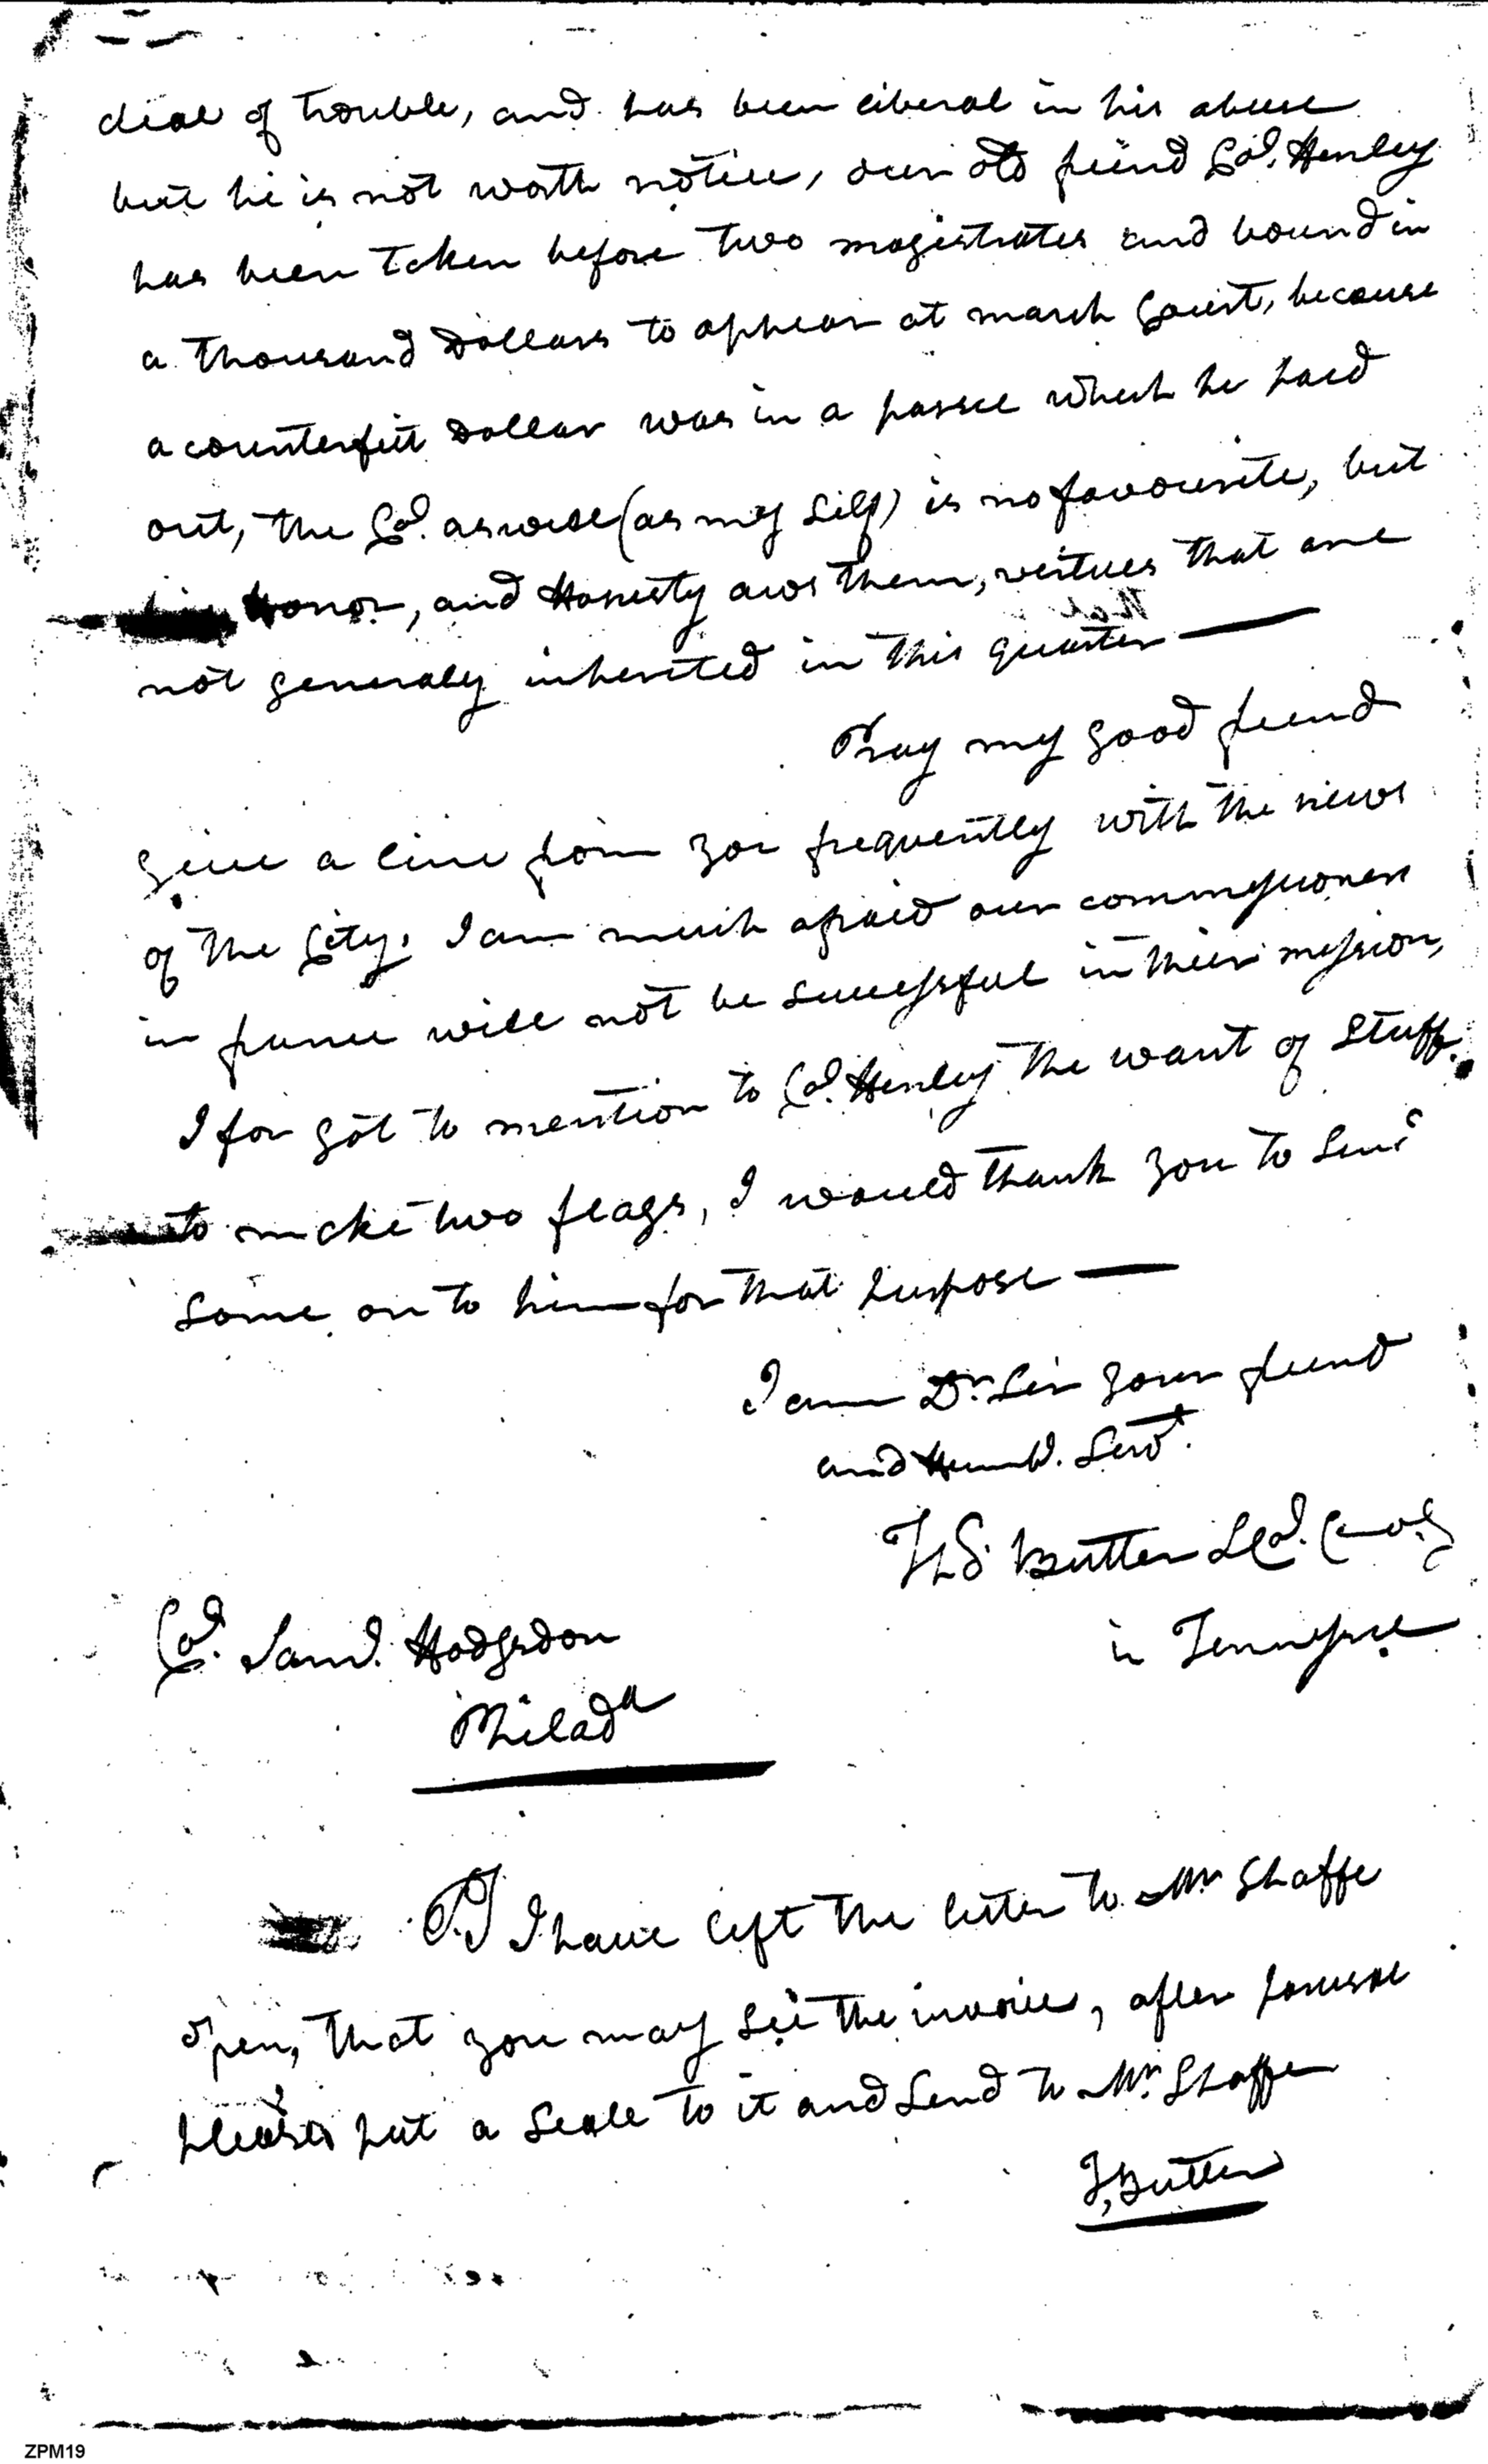 deal of trouble, and has been liberal in his abuse
but he is not worth notice, our old friend Col. Henley
has been taken before two magistrates and bound in
a thousand Dollars to appear at march Court, because
a counterfeit Dollar was in a parsel which he paid
out, the Col. as well (as my self) is no favourite, but
Honor, and Honesty aws them, virtues that are
not generaly inherited in this quarter —
Pray my good friend
give a line from you frequently with the news
of the City. I am much afraid our commissioners
in france will not be successful in their mission,
I for got to mention to Col. Henley the want of Stuff
to make two flags, I would thank you to Send
Some on to him for that purpose —
I am Dr. Sir your friend
and Humbl. Servt.
Ths. Butler Lt Col. Comdg
in Tennessee
Col. Saml. Hodgsdon
Philada
PS I have left the letter to Mr Shaffe
open, that you may see the invoice, after perusal
please put a Seale to it and Send to Mr. Shaffe
T, Butler
ZPM19